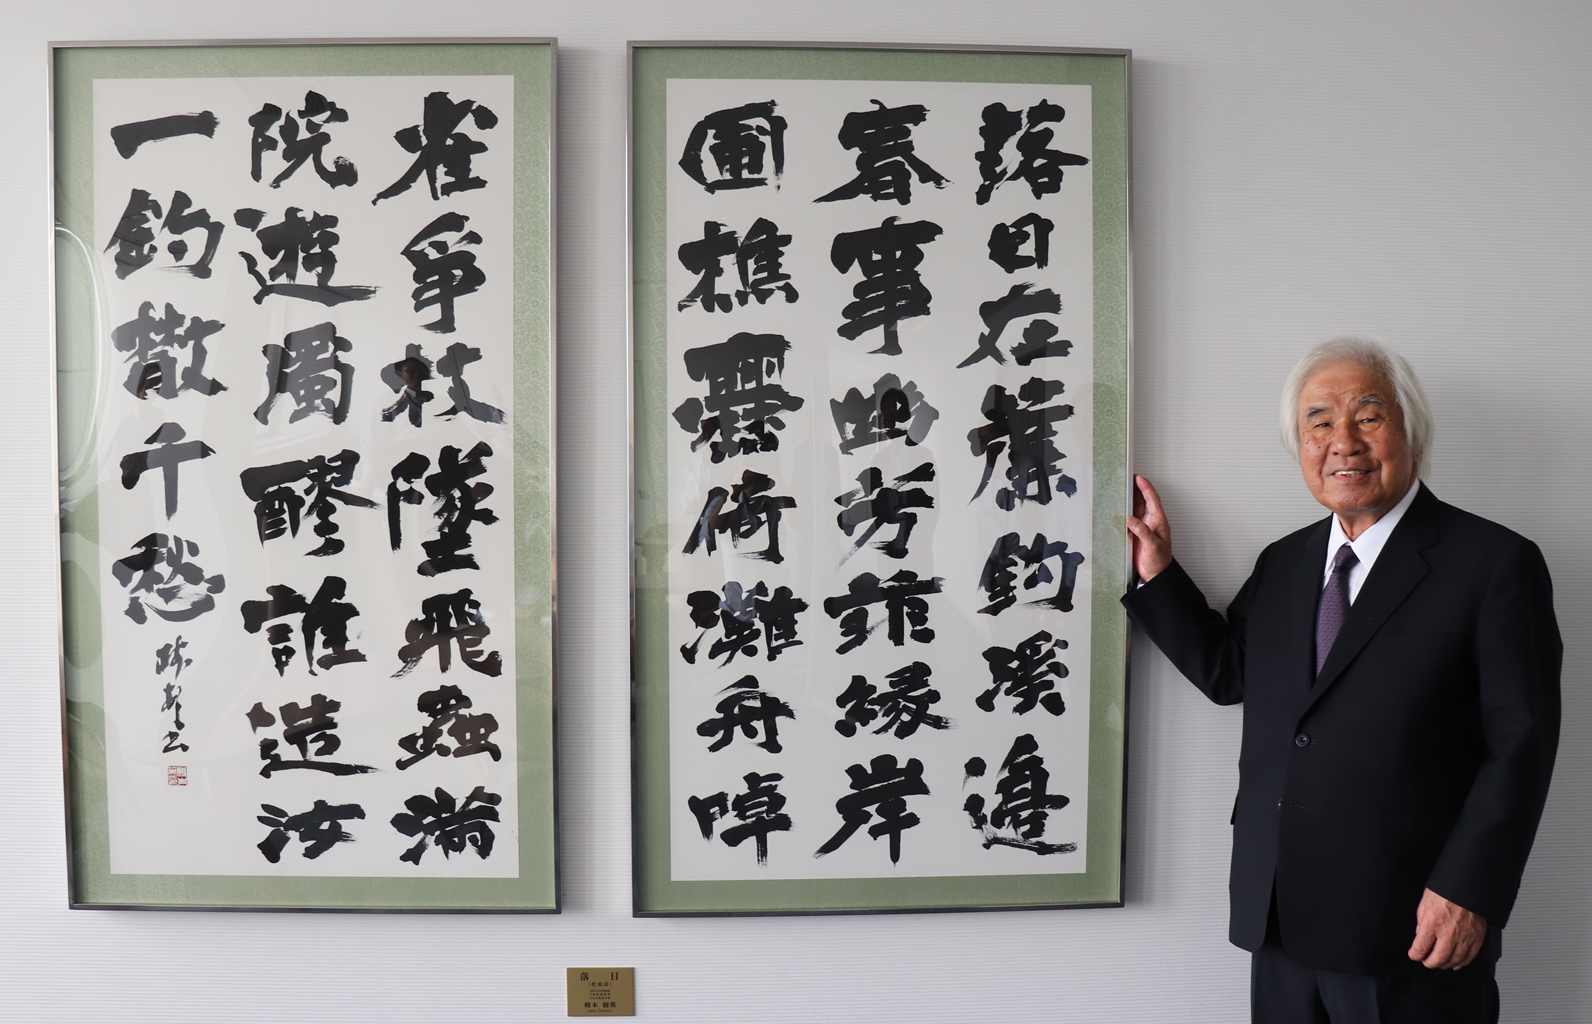 落日在簾鉤溪邊
春事幽芳菲緣岸
圃樵爨倚灘舟啅
雀爭枝墜飛蟲滿
院遊濁醪誰造汝
一酌散千愁
落 日
（杜甫詩）
樽本 樹邨